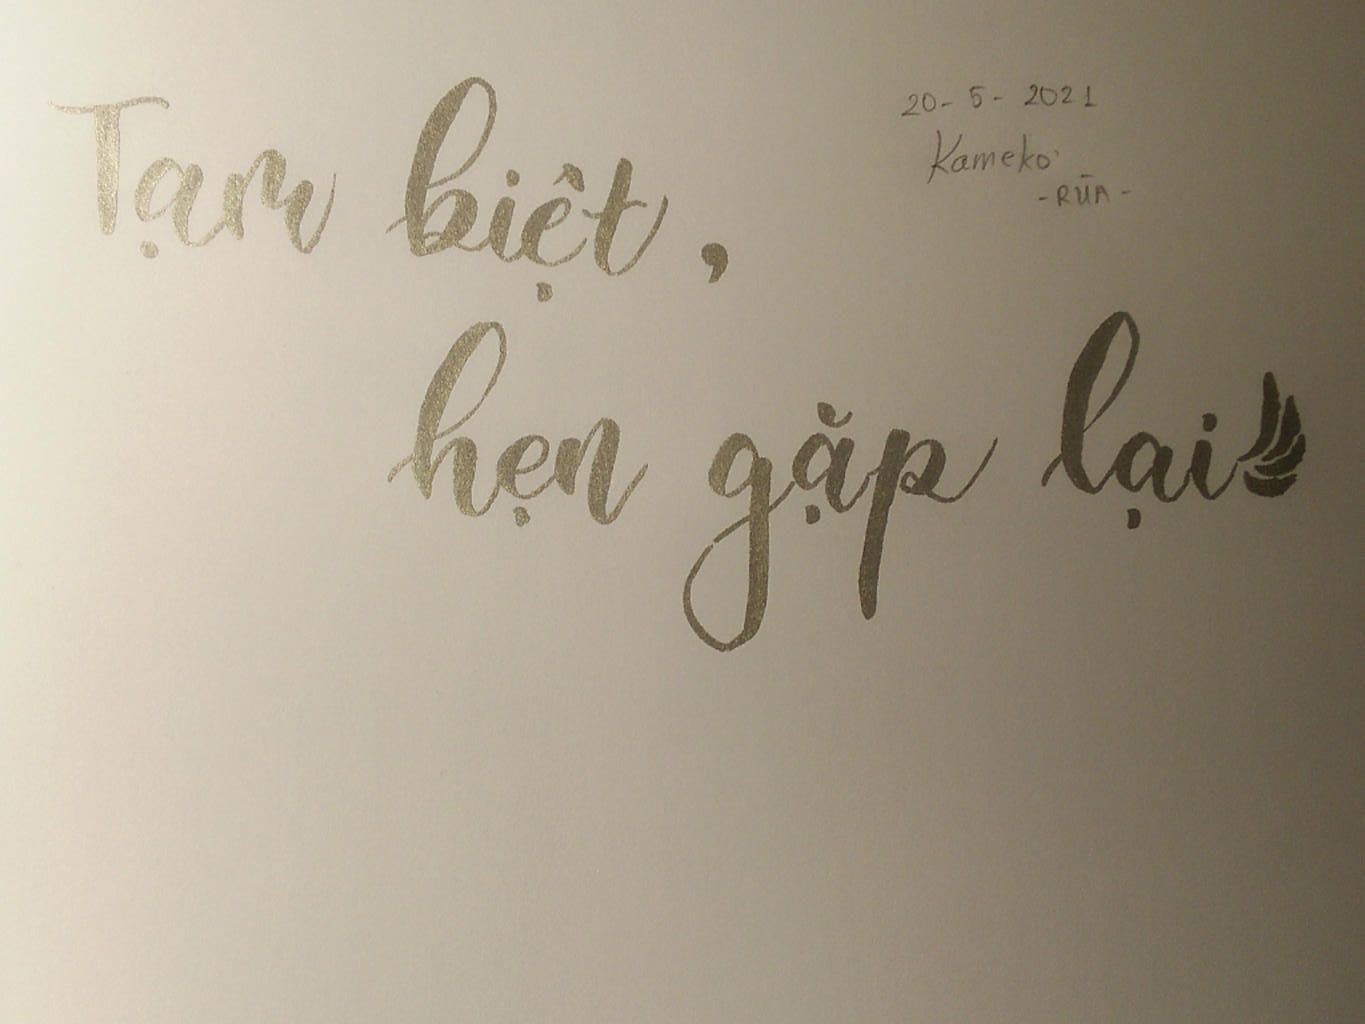 Tạm biệt,
hẹn gặp lại
20-5-2021
Kameko
-RÙA-